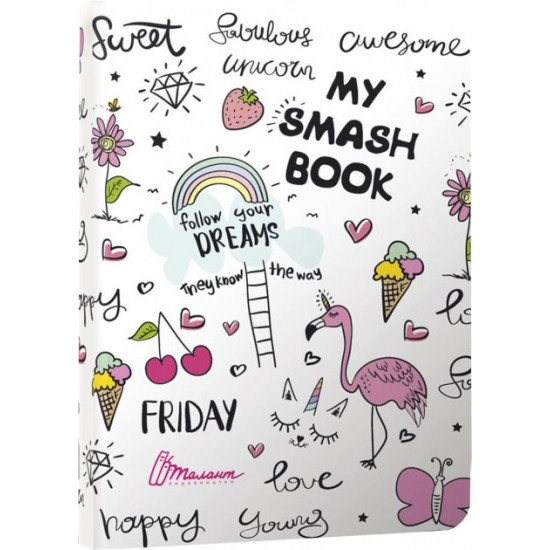 Sweet
fabulous
awesome
unicorn
MY
SMASH
BOOK
follow your
DREAMS
They know the way
love
happy
FRIDAY
Талант
видавництво
love
happy
young